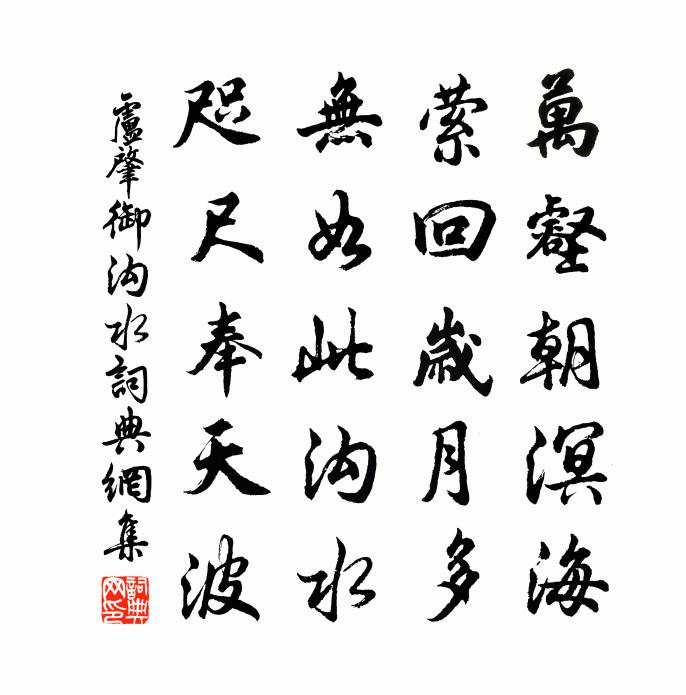 萬壑朝溟海
縈回歲月多
無如此沟水
咫尺奉天波
盧肇御沟水詞典網集
詞典網印